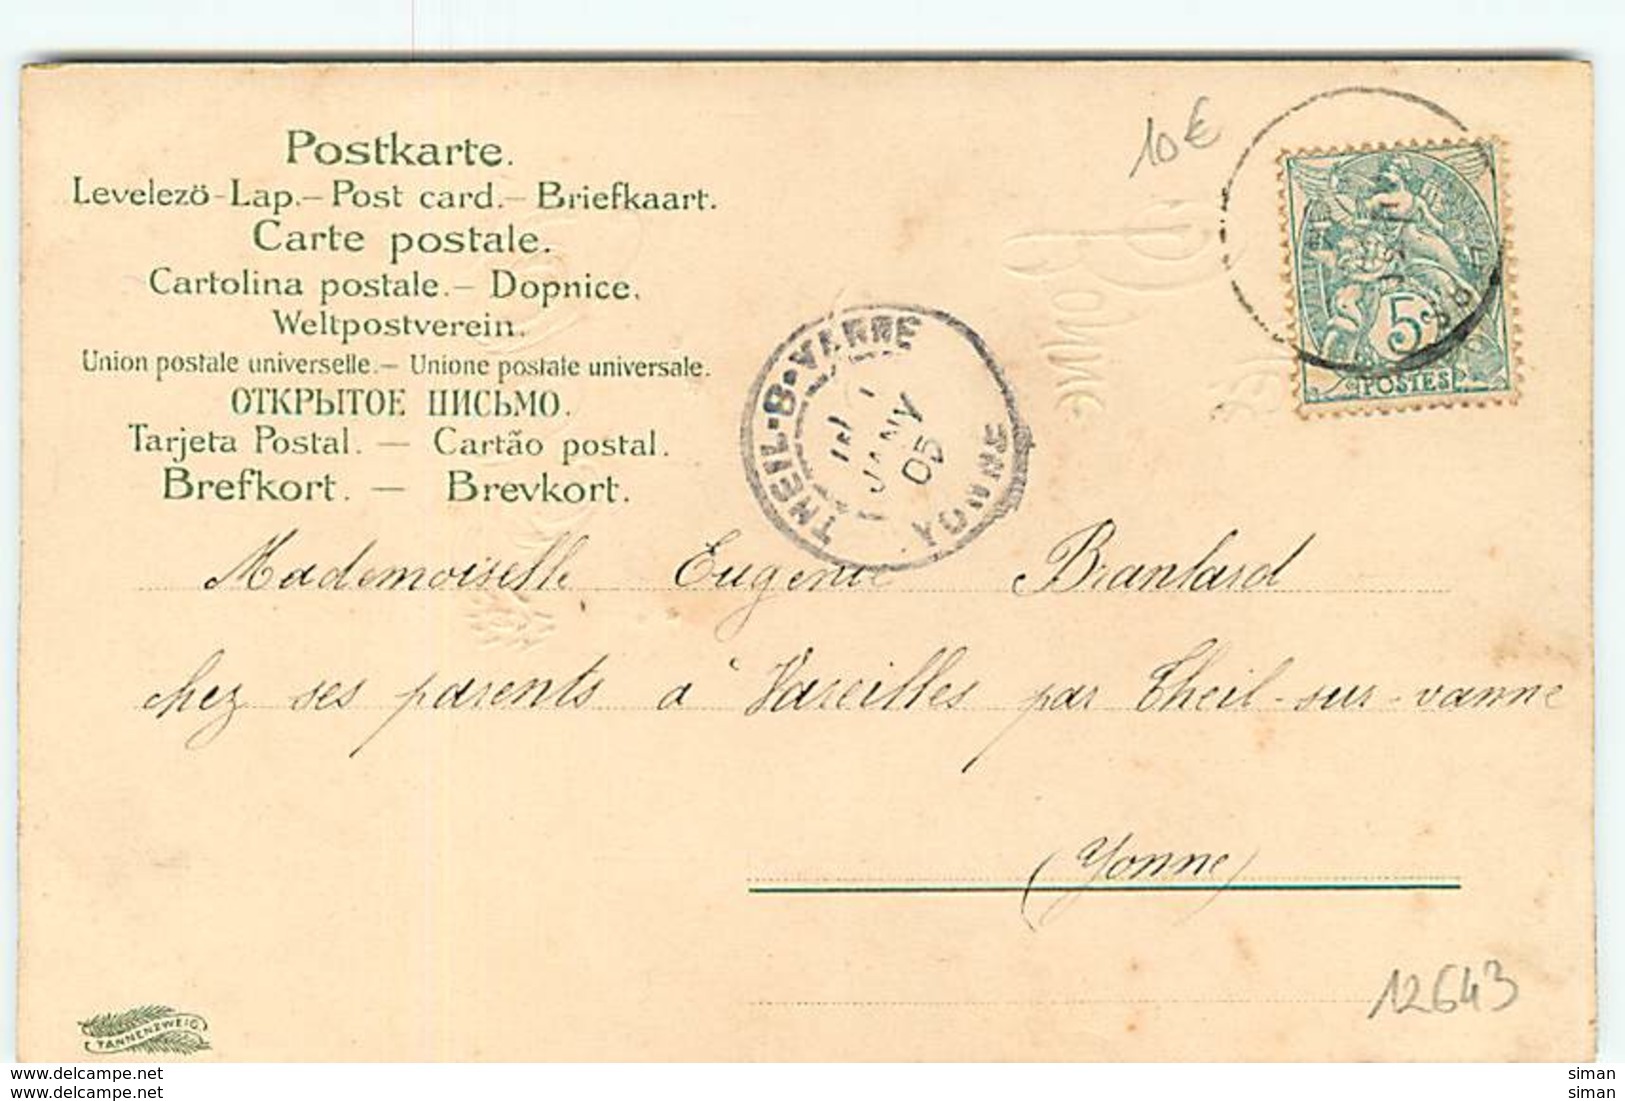 10€
Postkarte.
Levelező-Lap.— Post card.— Briefkaart.
Carte postale.
Cartolina postale.— Dopnice.
Weltpostverein.
Union postale universelle.— Unione postale universale.
ОТКРЫТОЕ ПИСЬМО.
Tarjeta Postal. — Cartão postal.
Brefkort. — Brevkort.
THEIL-S-VANNE
JANV
05
YONNE
5
POSTES
Bonne
Mademoiselle Eugenie Branlard
chez ses parents à Vareilles par Theil-sur-vanne
(Yonne)
12643
TANNENZWEIG
www.delcampe.net siman
www.delcampe.net siman